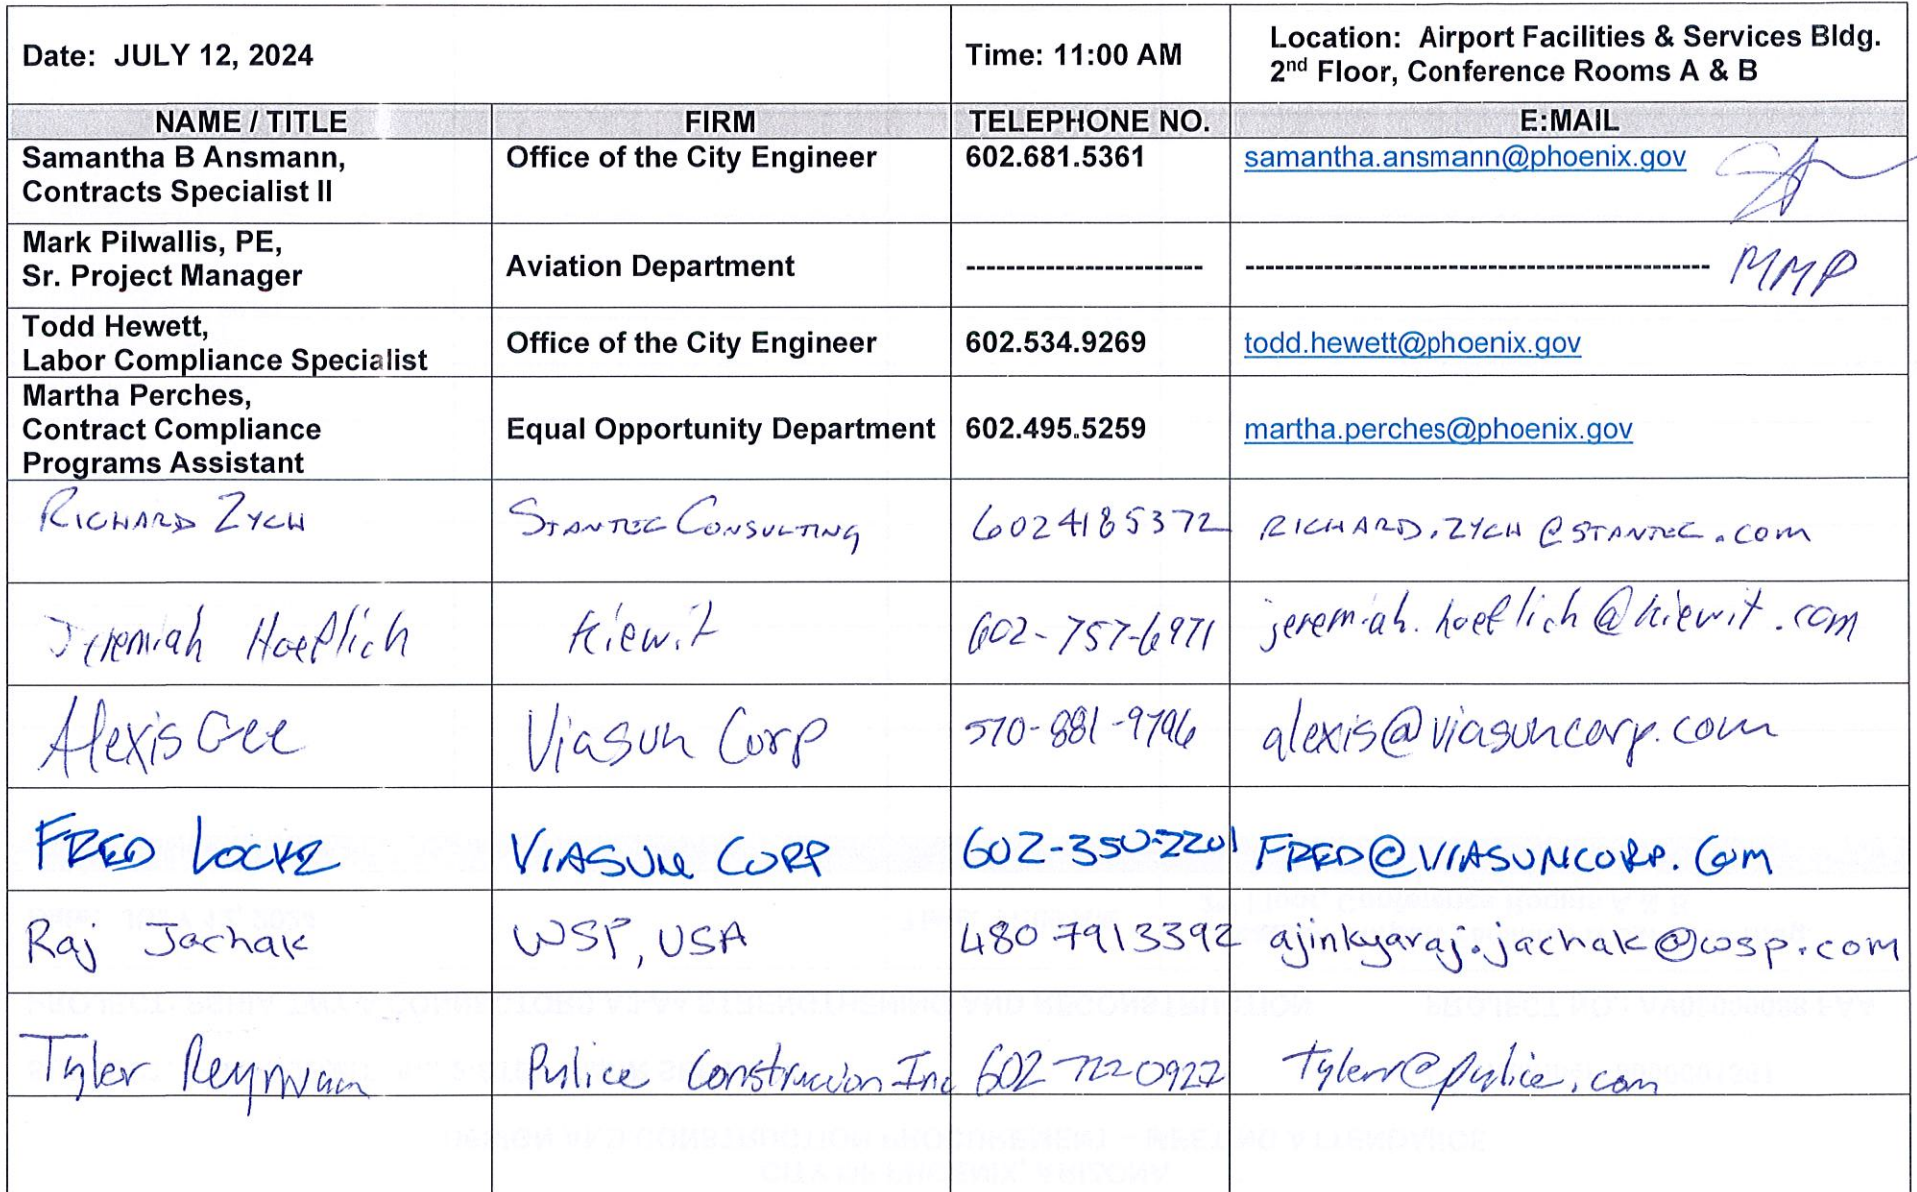 Date: JULY 12, 2024 Time: 11:00 AM Location: Airport Facilities & Services Bldg.
2nd Floor, Conference Rooms A & B
NAME / TITLE FIRM TELEPHONE NO. E:MAIL
Samantha B Ansmann, Office of the City Engineer 602.681.5361 samantha.ansmann@phoenix.gov
Contracts Specialist II
Mark Pilwallis, PE,
Sr. Project Manager Aviation Department ------------------------ ----------------------------------------------- MMP
Todd Hewett,
Labor Compliance Specialist Office of the City Engineer 602.534.9269 todd.hewett@phoenix.gov
Martha Perches,
Contract Compliance Equal Opportunity Department 602.495.5259 martha.perches@phoenix.gov
Programs Assistant
RICHARD ZYCH STANTEC CONSULTING 6024185372 RICHARD.ZYCH@STANTEC.COM
Jeremiah Hoeflich Kiewit 602-757-6971 jeremiah.hoeflich@kiewit.com
Alexis Gee Viasun Corp 570-881-9796 alexis@viasuncorp.com
FRED LOCKE VIASUN CORP 602-350-2201 FRED@VIASUNCORP.COM
Raj Jachak WSP, USA 480 7913392 ajinkyaraj.jachak@wsp.com
Tyler Pulice Construcion Inc 602 722 0927 tyler@pulice.com